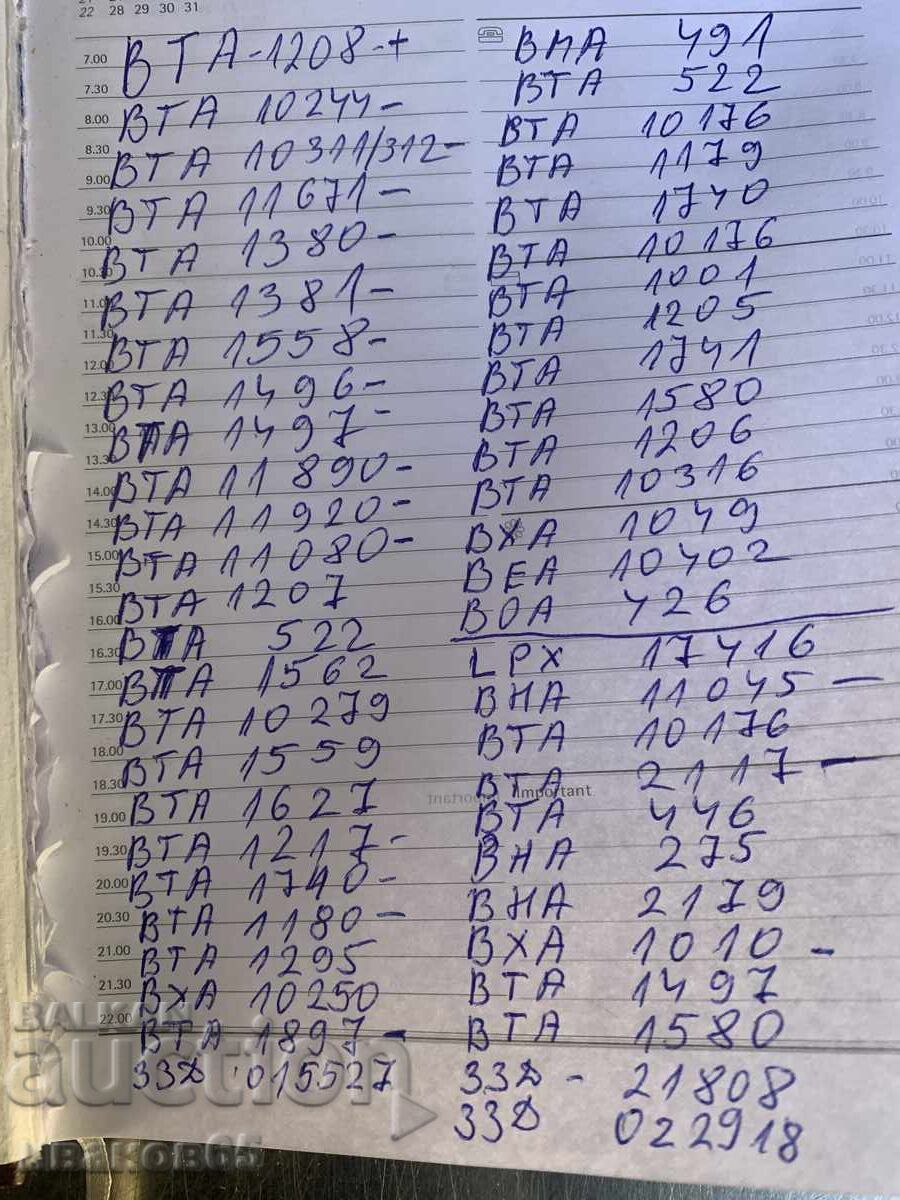 22 28 29 30 31
7.00 ВТА-1208-+
7.30
8.00 ВТА 10244-
8.30 ВТА 10311/312-
9.00
9.30 ВТА 11671-
10.00 ВТА 1380-
10.30
11.00 ВТА 1381-
11.30 ВТА 1558-
12.00
12.30 ВТА 1496-
13.00 ВТА 1497-
13.30 ВТА 11890-
14.00
14.30 ВТА 11920-
15.00 ВТА 11080-
15.30 ВТА 1207
16.00
16.30 ВТА 522
17.00 ВТА 1562
17.30 ВТА 10279
18.00 ВТА 1559
18.30
19.00 ВТА 1627
19.30 ВТА 1217-
20.00 ВТА 1740-
20.30 ВТА 1180-
21.00 ВТА 1295
21.30 ВХА 10250
22.00 ВТА 1897-
33Д 015527
ВНА 491
ВТА 522
ВТА 10176
ВТА 1179
ВТА 1740
ВТА 10176
ВТА 1001
ВТА 1205
ВТА 1741
ВТА 1580
ВТА 1206
ВТА 10316
ВХА 1049
ВЕА 10402
ВОА 426
LPX 17416
ВНА 11045-
ВТА 10176
ВТА 2117-
Important
ВТА 446
ВНА 275
ВНА 2179
ВХА 1010-
ВТА 1497
ВТА 1580
33Д - 21808
33Д 022918
BALKAN
auction
ИВАНОВ65